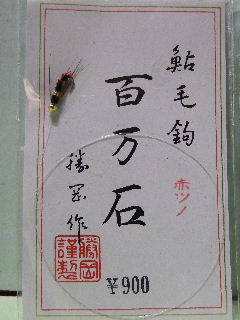 鮎毛鈎
赤ツノ
百万石
勝岡作
勝岡謹製
¥900